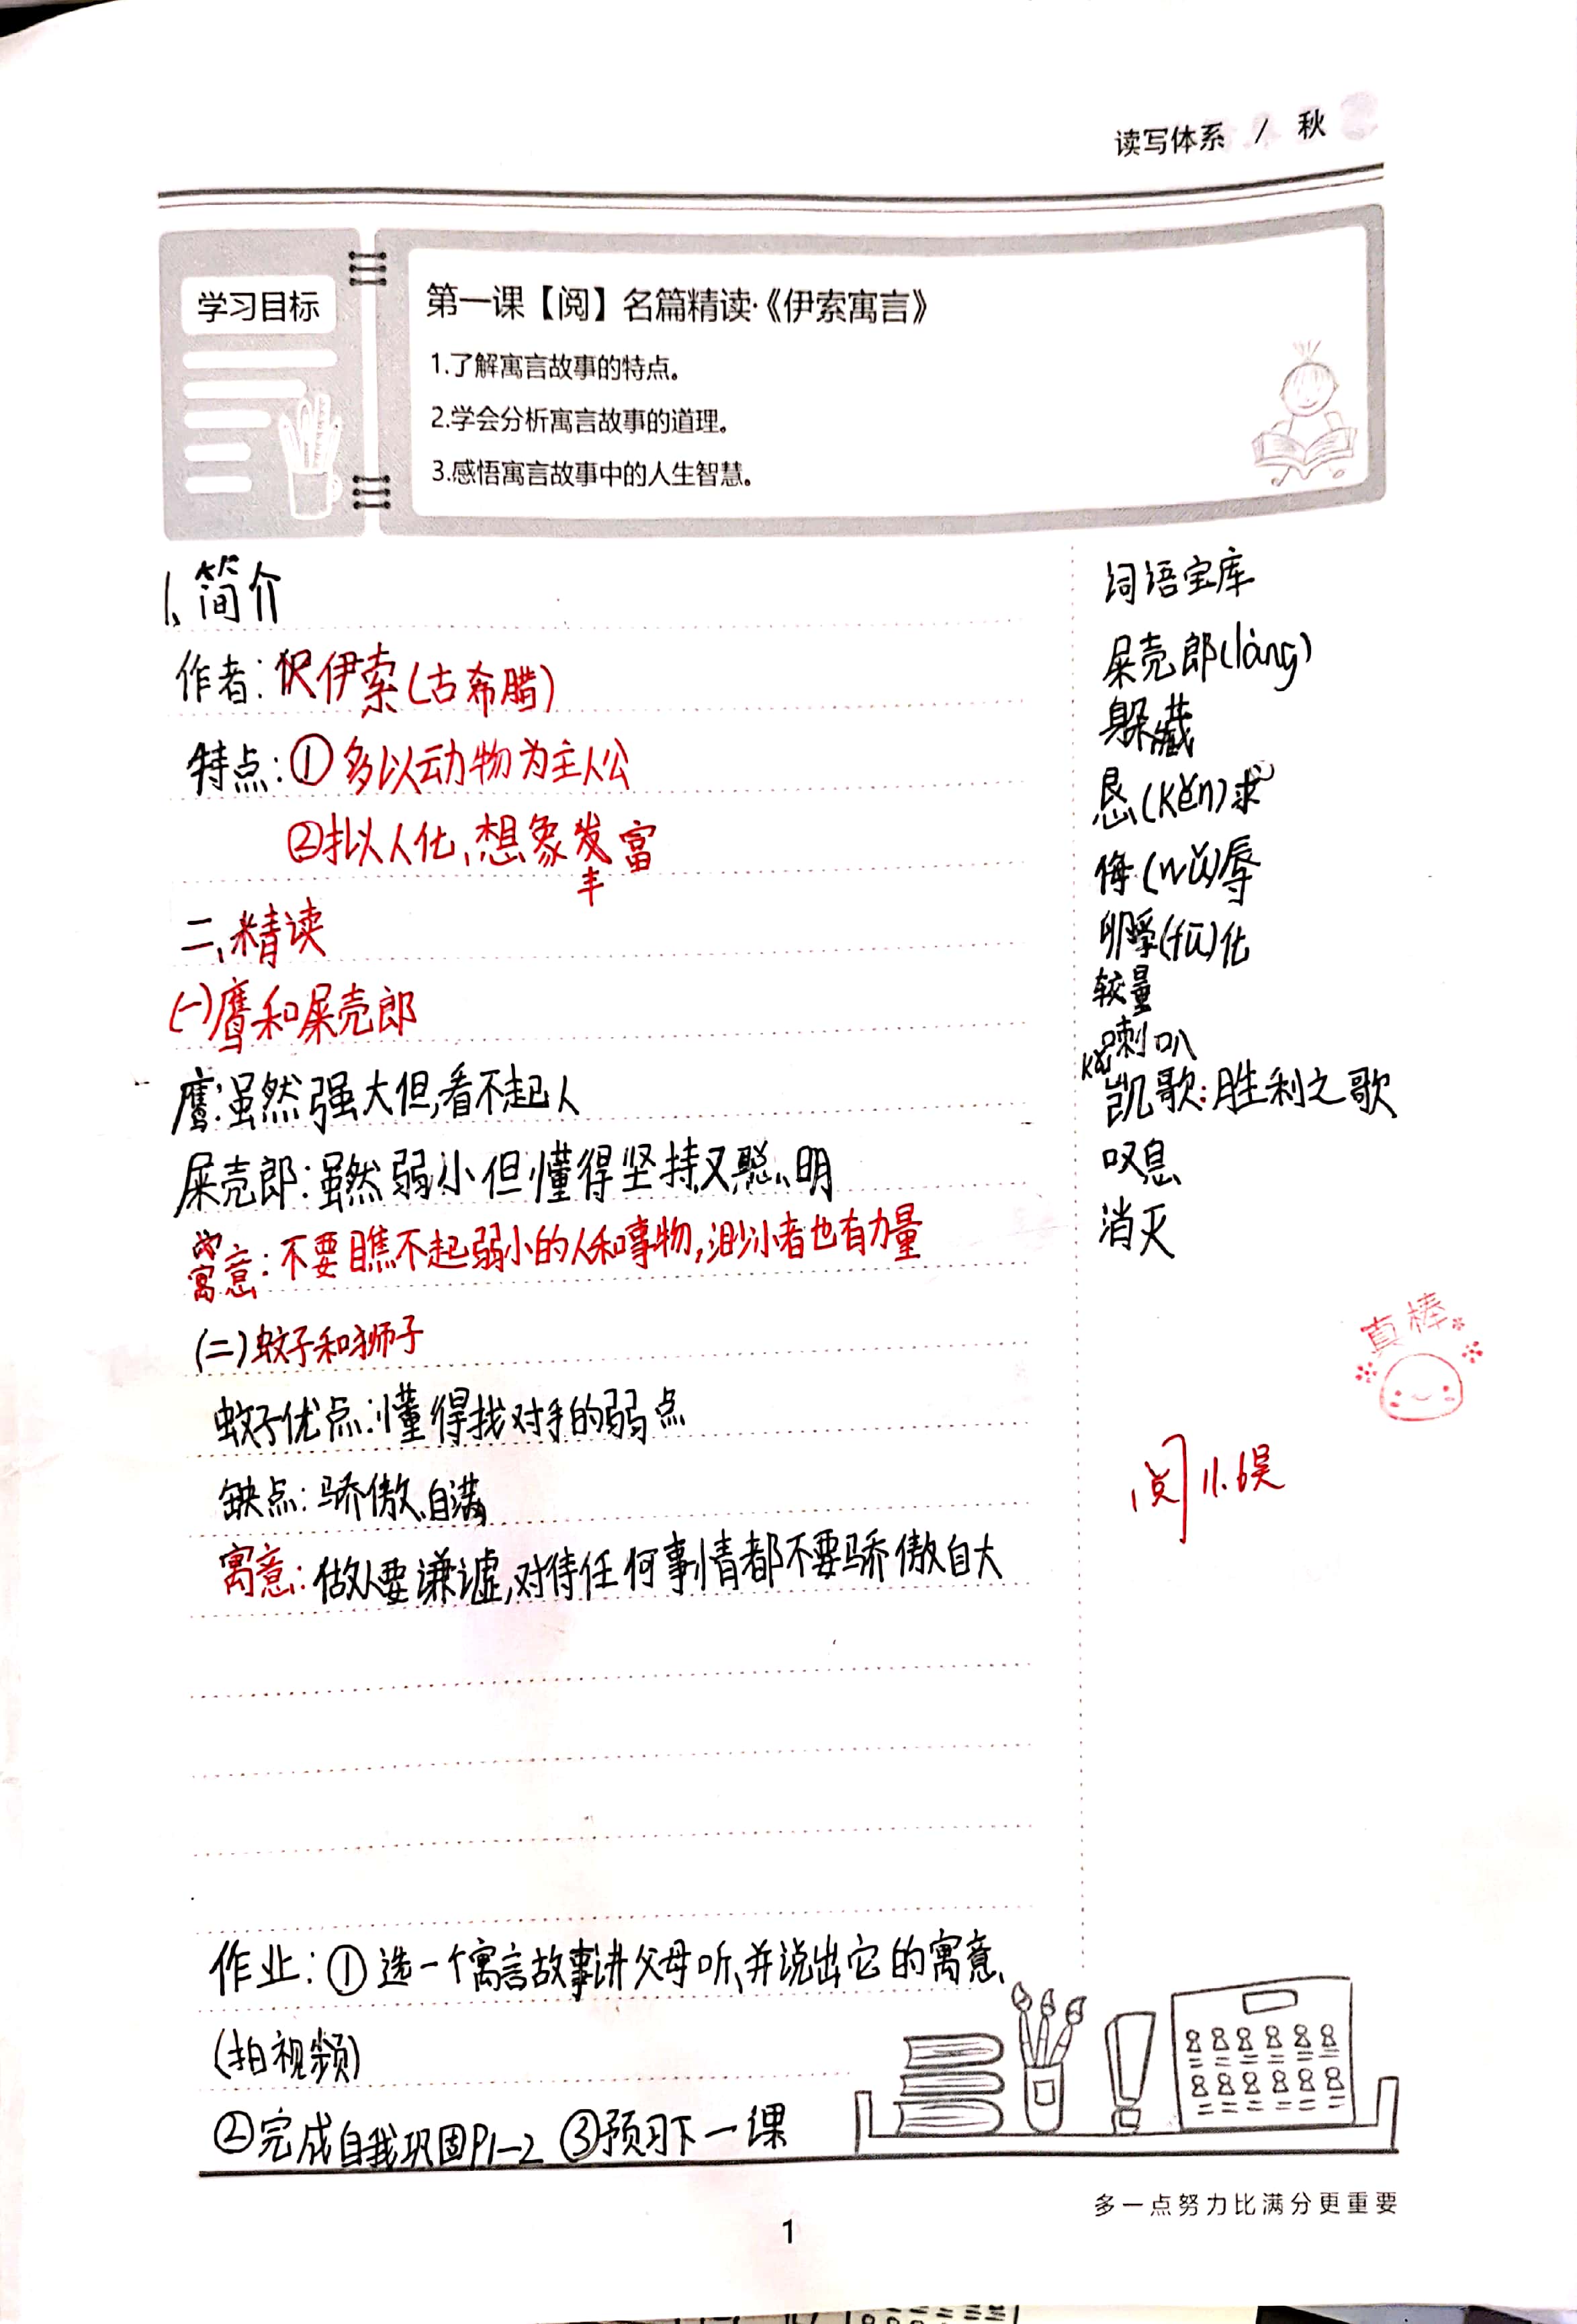 读写体系 / 秋
学习目标
第一课【阅】名篇精读·《伊索寓言》
1.了解寓言故事的特点。
2.学会分析寓言故事的道理。
3.感悟寓言故事中的人生智慧。
1、简介
作者：伊索(古希腊)
特点：①多以动物为主人公
②拟人化、想象富
丰
二、精读
(一)鹰和屎壳郎
鹰：虽然强大但,看不起人
屎壳郎：虽然弱小但懂得坚持又聪明
寓意：不要瞧不起弱小的人和事物,渺小者也有力量
(二)蚊子和狮子
蚊子优点：懂得找对手的弱点
缺点：骄傲、自满
寓意：做人要谦虚,对待任何事情都不要骄傲自大
作业：①选一个寓言故事讲父母听、并说出它的寓意、
(拍视频)
②完成自我巩固P1-2 ③预习下一课
词语宝库
屎壳郎(làng)
躲藏
恳(kěn)求
侮(wǔ)辱
孵(fū)化
较量
喇叭
凯歌：胜利之歌
叹息
消灭
真棒
阅 11.6
多一点努力比满分更重要
1